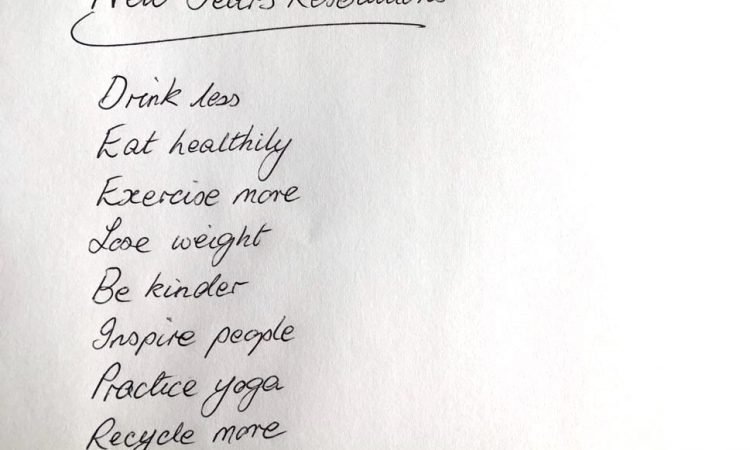 New Years Resolutions
Drink less
Eat healthily
Exercise more
Lose weight
Be kinder
Inspire people
Practice yoga
Recycle more